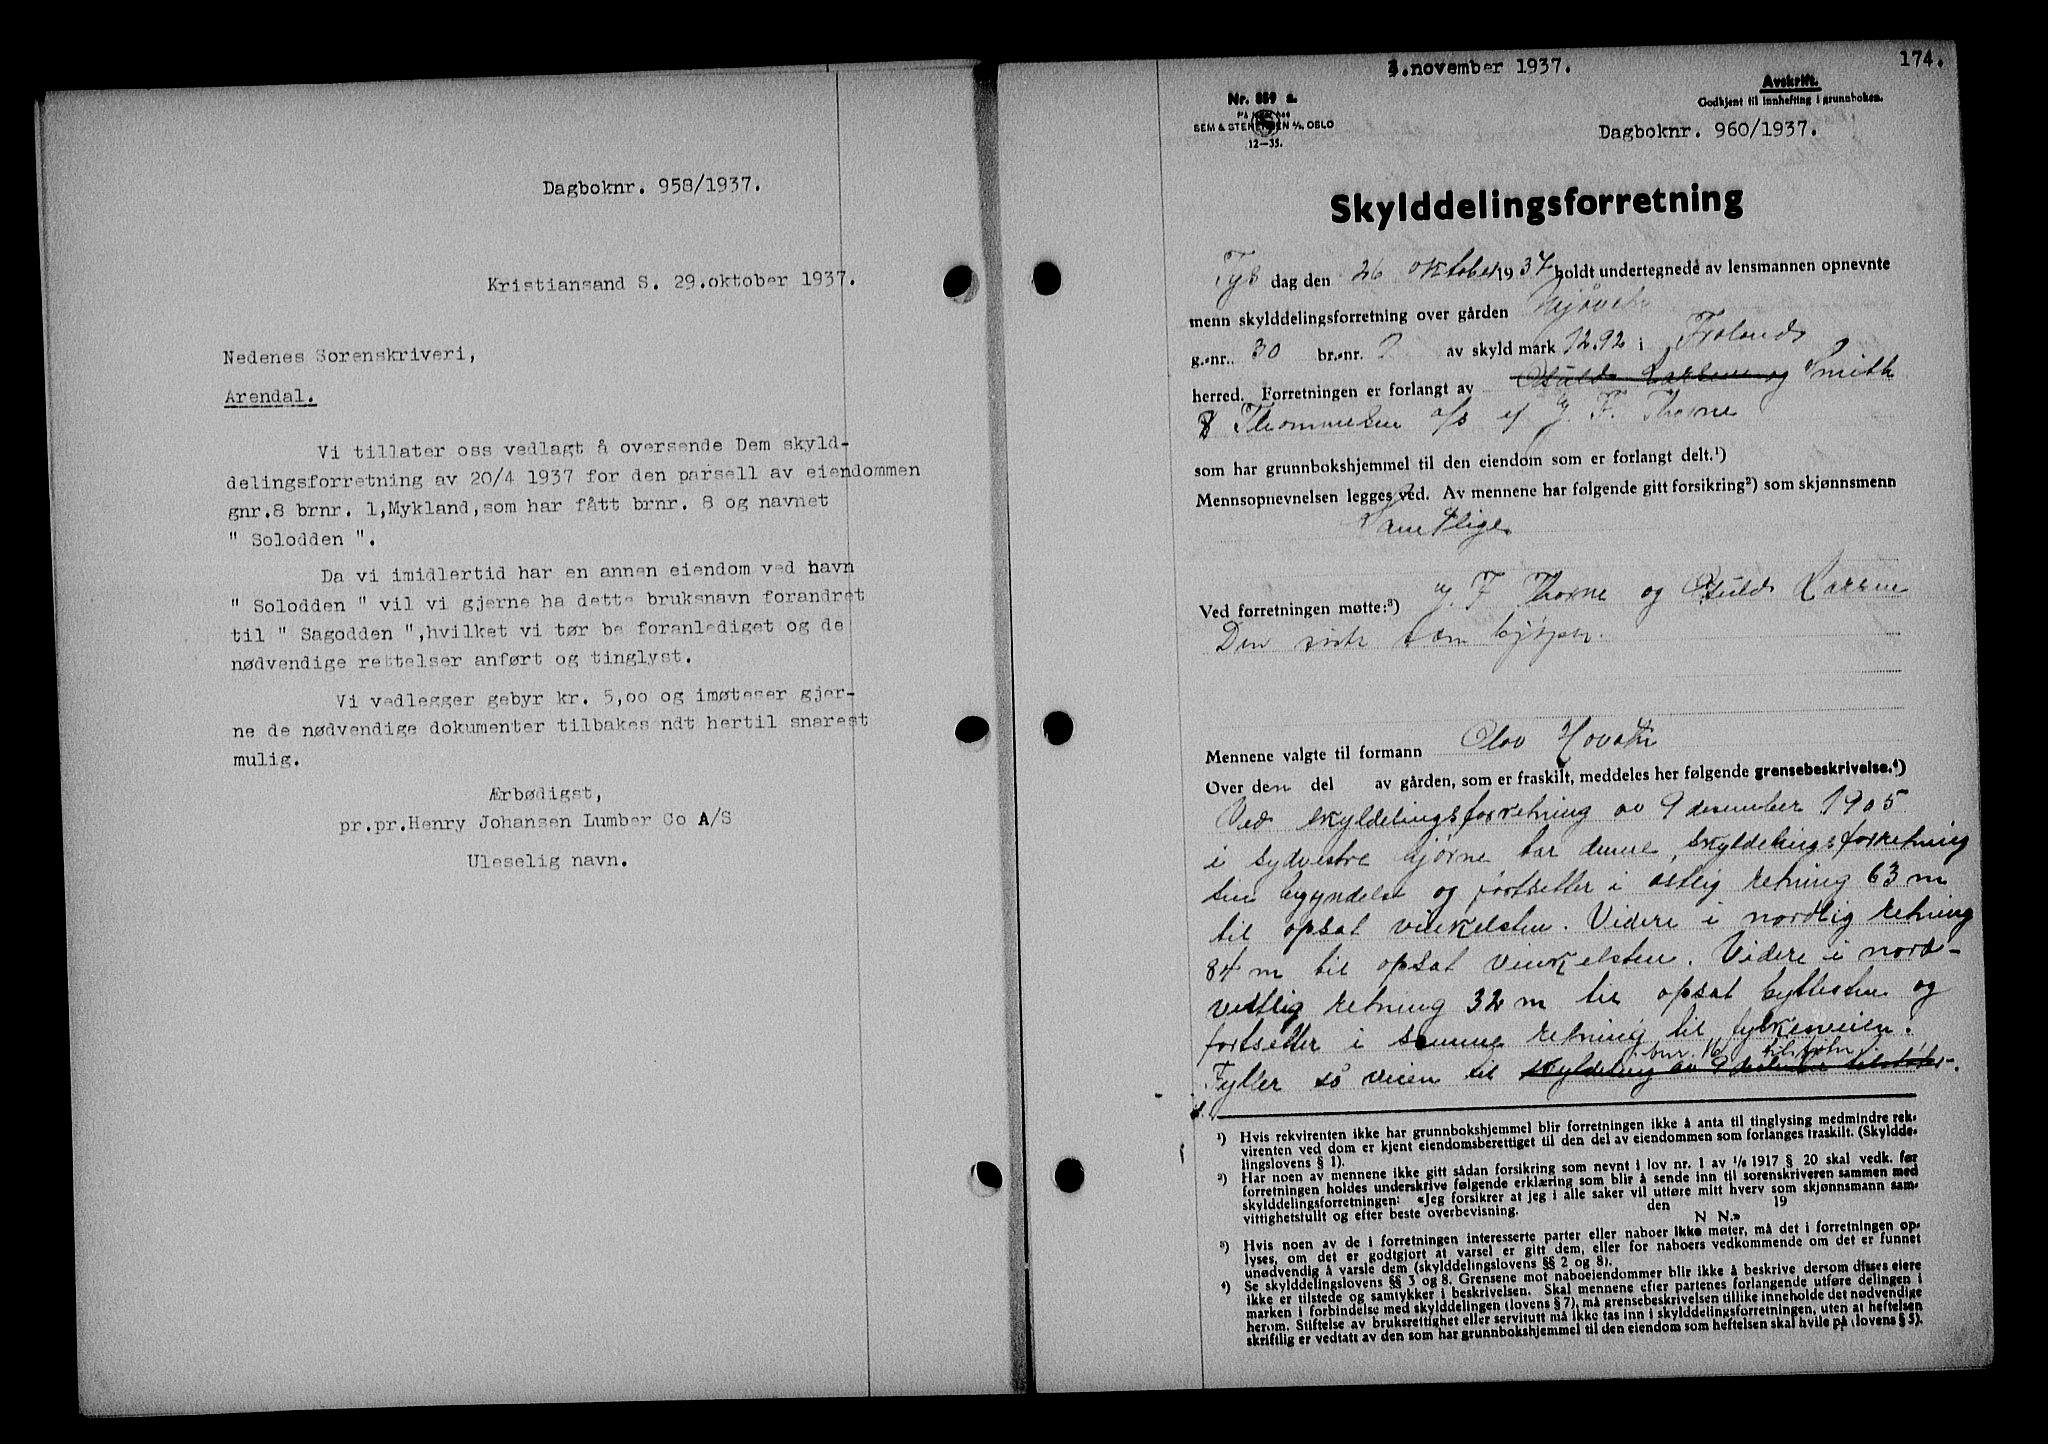 Dagboknr. 958/1937.
Kristiansand S. 29.oktober 1937.
Nedenes Sorenskriveri,
Arendal.
Vi tillater oss vedlagt å oversende Dem skyld-
delingsforretning av 20/4 1937 for den parsell av eiendommen
gnr.8 brnr. 1,Mykland,som har fått brnr. 8 og navnet
" Solodden ".
Da vi imidlertid har en annen eiendom ved havn
" Solodden " vil vi gjerne ha dette bruksnavn forandret
til " Sagodden ",hvilket vi tør be foranlediget og de
nødvendige rettelser anført og tinglyst.
Vi vedlegger gebyr kr. 5,oo og imøteser gjer-
ne de nødvendige dokumenter tilbakesendt hertil snarest
mulig.
Ærbødigst,
pr.pr.Henry Johansen Lumber Co A/S
Uleselig navn.
174.
3.november 1937.
Avskrift.
Godkjent til innhefting i grunnboken.
Nr. 859 a.
SEM & STENERSEN A/S, OSLO
12—35.
Dagboknr. 960/1937.
Skylddelingsforretning
Tys dag den 26 oktober 1937 holdt undertegnede av lensmannen opnevnte
menn skylddelingsforretning over gården
g.-nr. 30 br.-nr. 7 av skyld mark 12.92 i Frolands
herred. Forretningen er forlangt av Smith
& Thommesen a/s v/ J. F. Thorne
som har grunnbokshjemmel til den eiendom som er forlangt delt.¹)
Mennsopnevnelsen legges ved. Av mennene har følgende gitt forsikring²) som skjønnsmenn
Samtlige
Ved forretningen møtte:³) J. F Thorne og Larsen
Den siste som kjøper.
Mennene valgte til formann Olav
Over den del av gården, som er fraskilt, meddeles her følgende grensebeskrivelse.⁴)
Ved skyldelingsforretning av 9 desember 1905
i sydvestre hjørne tar denne skyldelingsforretning
sin begyndelse og fortsetter i østlig retning 63 m
til opsat vinkelsten. Videre i nordlig retning
84 m til opsat vinkelsten. Videre i nord-
vestlig retning 32 m til opsat byttesten og
fortsetter i samme retning til fylkesveien.
bnr. 16 tilstøter
Fyller så veien til skyldeling av 9 desember tilstøter-
¹) Hvis rekvirenten ikke har grunnbokshjemmel blir forretningen ikke å anta til tinglysing medmindre rek-
virenten ved dom er kjent eiendomsberettiget til den del av eiendommen som forlanges fraskilt. (Skyldde-
lingslovens § 1).
²) Har noen av mennene ikke gitt sådan forsikring som nevnt i lov nr. 1 av 1/6 1917 § 20 skal vedk. før
forretningen holdes underskrive følgende erklæring som blir å sende inn til sorenskriveren sammen med
skylddelingsforretningen: «Jeg forsikrer at jeg i alle saker vil utføre mitt hverv som skjønnsmann sam-
vittighetsfullt og efter beste overbevisning. den 19
N N.»
³) Hvis noen av de i forretningen interesserte parter eller naboer ikke møter, må det i forretningen op-
lyses, om det er godtgjort at varsel er gitt dem, eller for naboers vedkommende om det er funnet
unødvendig å varsle dem (skylddelingslovens §§ 2 og 8).
⁴) Se skylddelingslovens §§ 3 og 8. Grensene mot naboeiendommer blir ikke å beskrive dersom disses eiere
ikke er tilstede og samtykker i beskrivelsen. Skal mennene efter partenes forlangende utføre delingen i
marken i forbindelse med skylddelingen (lovens § 7), må grensebeskrivelsen tillike inneholde det nødvendige
herom. Stiftelse av bruksrettighet eller servitutt må ikke tas inn i skylddelingsforretningen, uten at heftelsen
skriftlig er vedtatt av den som har grunnbokshjemmel til den eiendom som heftelsen skal hvile på (lovens § 5).